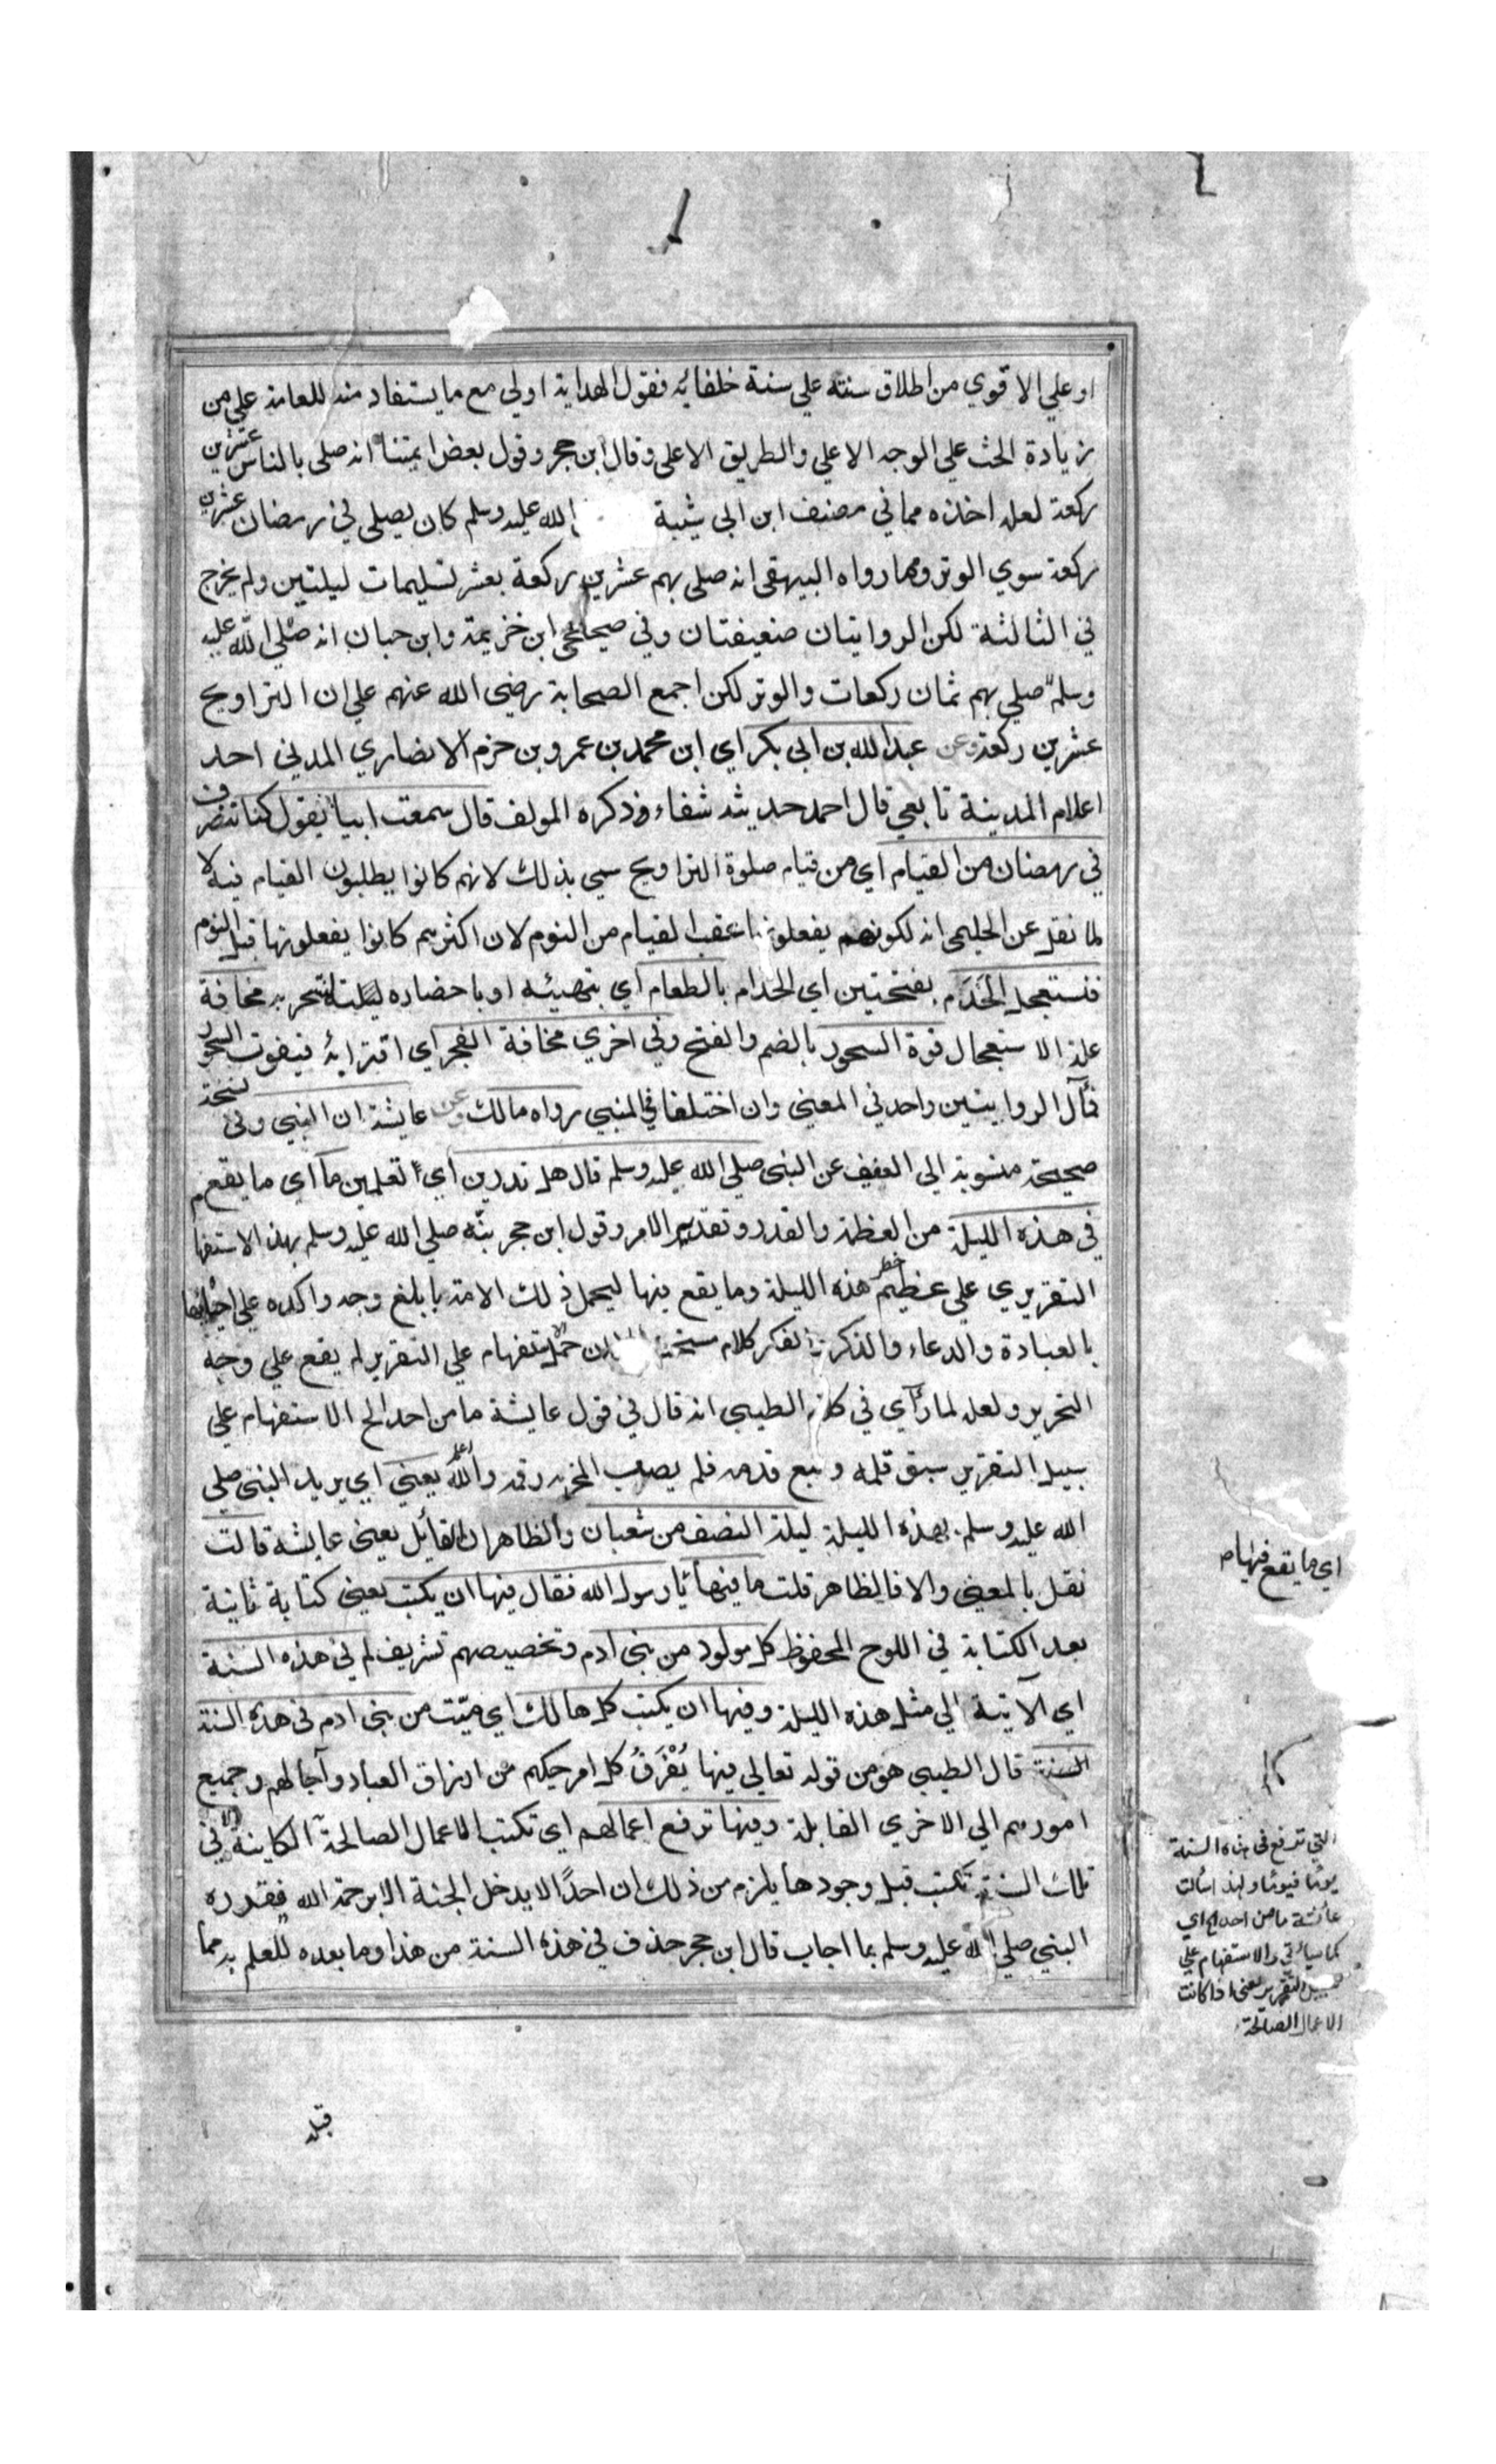 او علي الاقوي من اطلاق سنته علي سنة خلفائه فقول الهداية اولي مع ما يستفاد منه للعامة علي من
زيادة الحث علي الوجه الاعلي والطريق الاعلي وقال ابن حجر وقول بعض ايمتنا انه صلي بالناس عشرين
ركعة لعله اخذه مما في مصنف ابن ابي شيبة الله عليه وسلم كان يصلي في رمضان عشرين
ركعة سوي الوتر ومما رواه البيهقي انه صلي بهم عشرين ركعة بعشر تسليمات ليلتين ولم يخرج
في الثالثة لكن الروايتان ضعيفتان وفي صحيحي ابن خزيمة وابن حبان انه صلي الله عليه
وسلم صلي بهم ثمان ركعات والوتر لكن اجمع الصحابة رضي الله عنهم علي ان التراويح
عشرين ركعة وعن عبد الله بن ابي بكر اي ابن محمد بن عمرو بن حزم الانصاري المدني احد
اعلام المدينة تابعي قال احمد حديثه شفاء وذكره المولف قال سمعت ابيا يقول كنا ننصرف
في رمضان من القيام اي من قيام صلوة التراويح سمي بذلك لانهم كانوا يطلبون القيام فيه لا
لما نقل عن الحليمي انه لكونهم يفعلونها عقب القيام من النوم لان اكثرهم كانوا يفعلونها قبل النوم
فنستعجل الخَدَم بفتحتين اي الخدام بالطعام اي بتهيئه او باحضاره لنتسحر به مخافة
علة الاستعجال فوة السحور بالضم والفتح وفي اخري مخافة الفجر اي اقترابه فيفوت السحور
فمآل الروايتين واحد في المعني وان اختلفا في المبني رواه مالك وعن عايشة ان النبي وفي نسخة
صحيحة منسوبة الي العفيف عن النبي صلي الله عليه وسلم قال هل تدرين اي اتعلمين ما اي ما يقع
في هذه الليلة من العظمة والقدر وتقدير الامر وقول ابن حجر نبّه صلي الله عليه وسلم بهذا الاستفها
التقريري علي عظيم خطر هذه الليلة وما يقع فيها ليحمل ذلك الامة بابلغ وجه واكده علي احيائها
بالعبادة والدعاء والذكر والفكر كلام حمل الاستفهام علي التقرير لم يقع علي وجه
التحرير ولعله لما رآي في كلام الطيبي انه قال في قول عايشة ما من احد الخ الاستفهام علي
سبيل التقرير سبق قلمه وتبع قدمه فلم يصب رقمه والله اعلم يعني اي يريد النبي صلي
الله عليه وسلم بهذه الليلة ليلة النصف من شعبان والظاهر ان القائل يعني عايشة قالت
نقل بالمعني والا فالظاهر قلت ما فيها يا رسول الله فقال فيها ان يكتب يعني كتابة ثانية
بعد الكتابة في اللوح المحفوظ كل مولود من بني ادم وتخصيصهم تشريف لهم في هذه السنة
اي الآتية الي مثل هذه الليلة وفيها ان يكتب كل هالك اي ميت من بني ادم في هذه السنة
السنة قال الطيبي هو من قوله تعالي فيها يُفْرَقُ كل امر حكيم من ارزاق العباد وآجالهم وجميع
امورهم الي الاخري القابلة وفيها ترفع اعمالهم اي تكتب الاعمال الصالحة الكاينة في
تلك السنة تكتب قبل وجودها يلزم من ذلك ان احدًا لا يدخل الجنة الا برحمة الله فقدره
النبي صلي الله عليه وسلم بما اجاب قال ابن حجر حذف في هذه السنة من هذا وما بعده للعلم به مما
اي ما يقع فيها
التي ترفع في هذه السنة
يومًا فيومًا ولهذا سالت
عائشة ما من احد الخ اي
كما سيأتي والاستفهام علي
سبيل التقرير يعني اذا كانت
الاعمال الصالحة
قبله